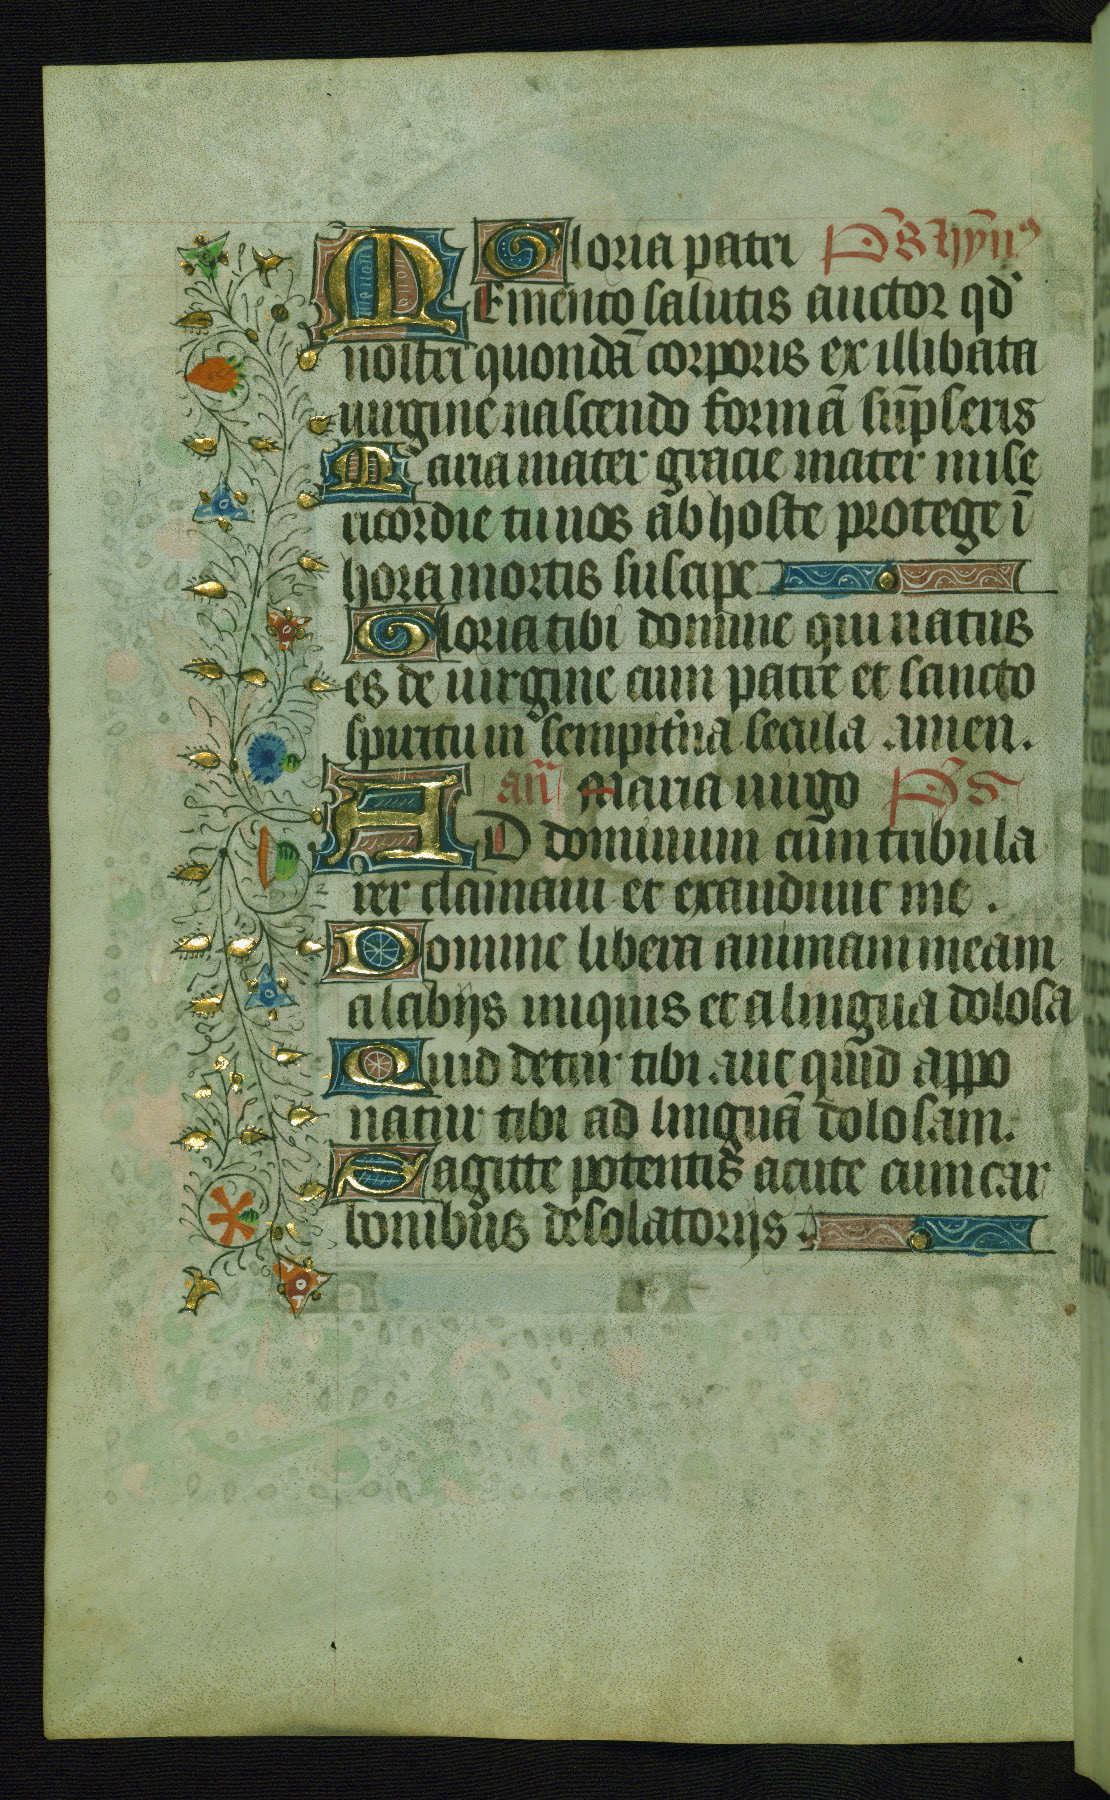 Gloria patri Ps hỹn̄us
MEmento salutis auctor qd'
nostri quondā corporis ex illibata
uirgine nascendo formā sūpseris
Maria mater gracie mater mise
ricordie tu nos ab hoste protege ī
hora mortis suscipe
Gloria tibi domine qui natus
es de uirgine cum patre et sancto
spiritu in sempit'na secula .amen.
añ Maria uirgo Ps
AD dominum cum tribula
rer clamaui et exaudiuit me .
Domine libera animam meam
a labijs iniquis et a lingua dolosa
Quid detur tibi .aut quid appo
natur tibi ad linguā dolosam.
Sagitte potentis acute cum car
bonibus desolatorijs .